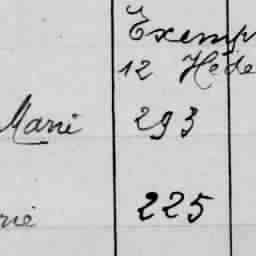 Exemp
12 Hede
Marie 293
rie 225